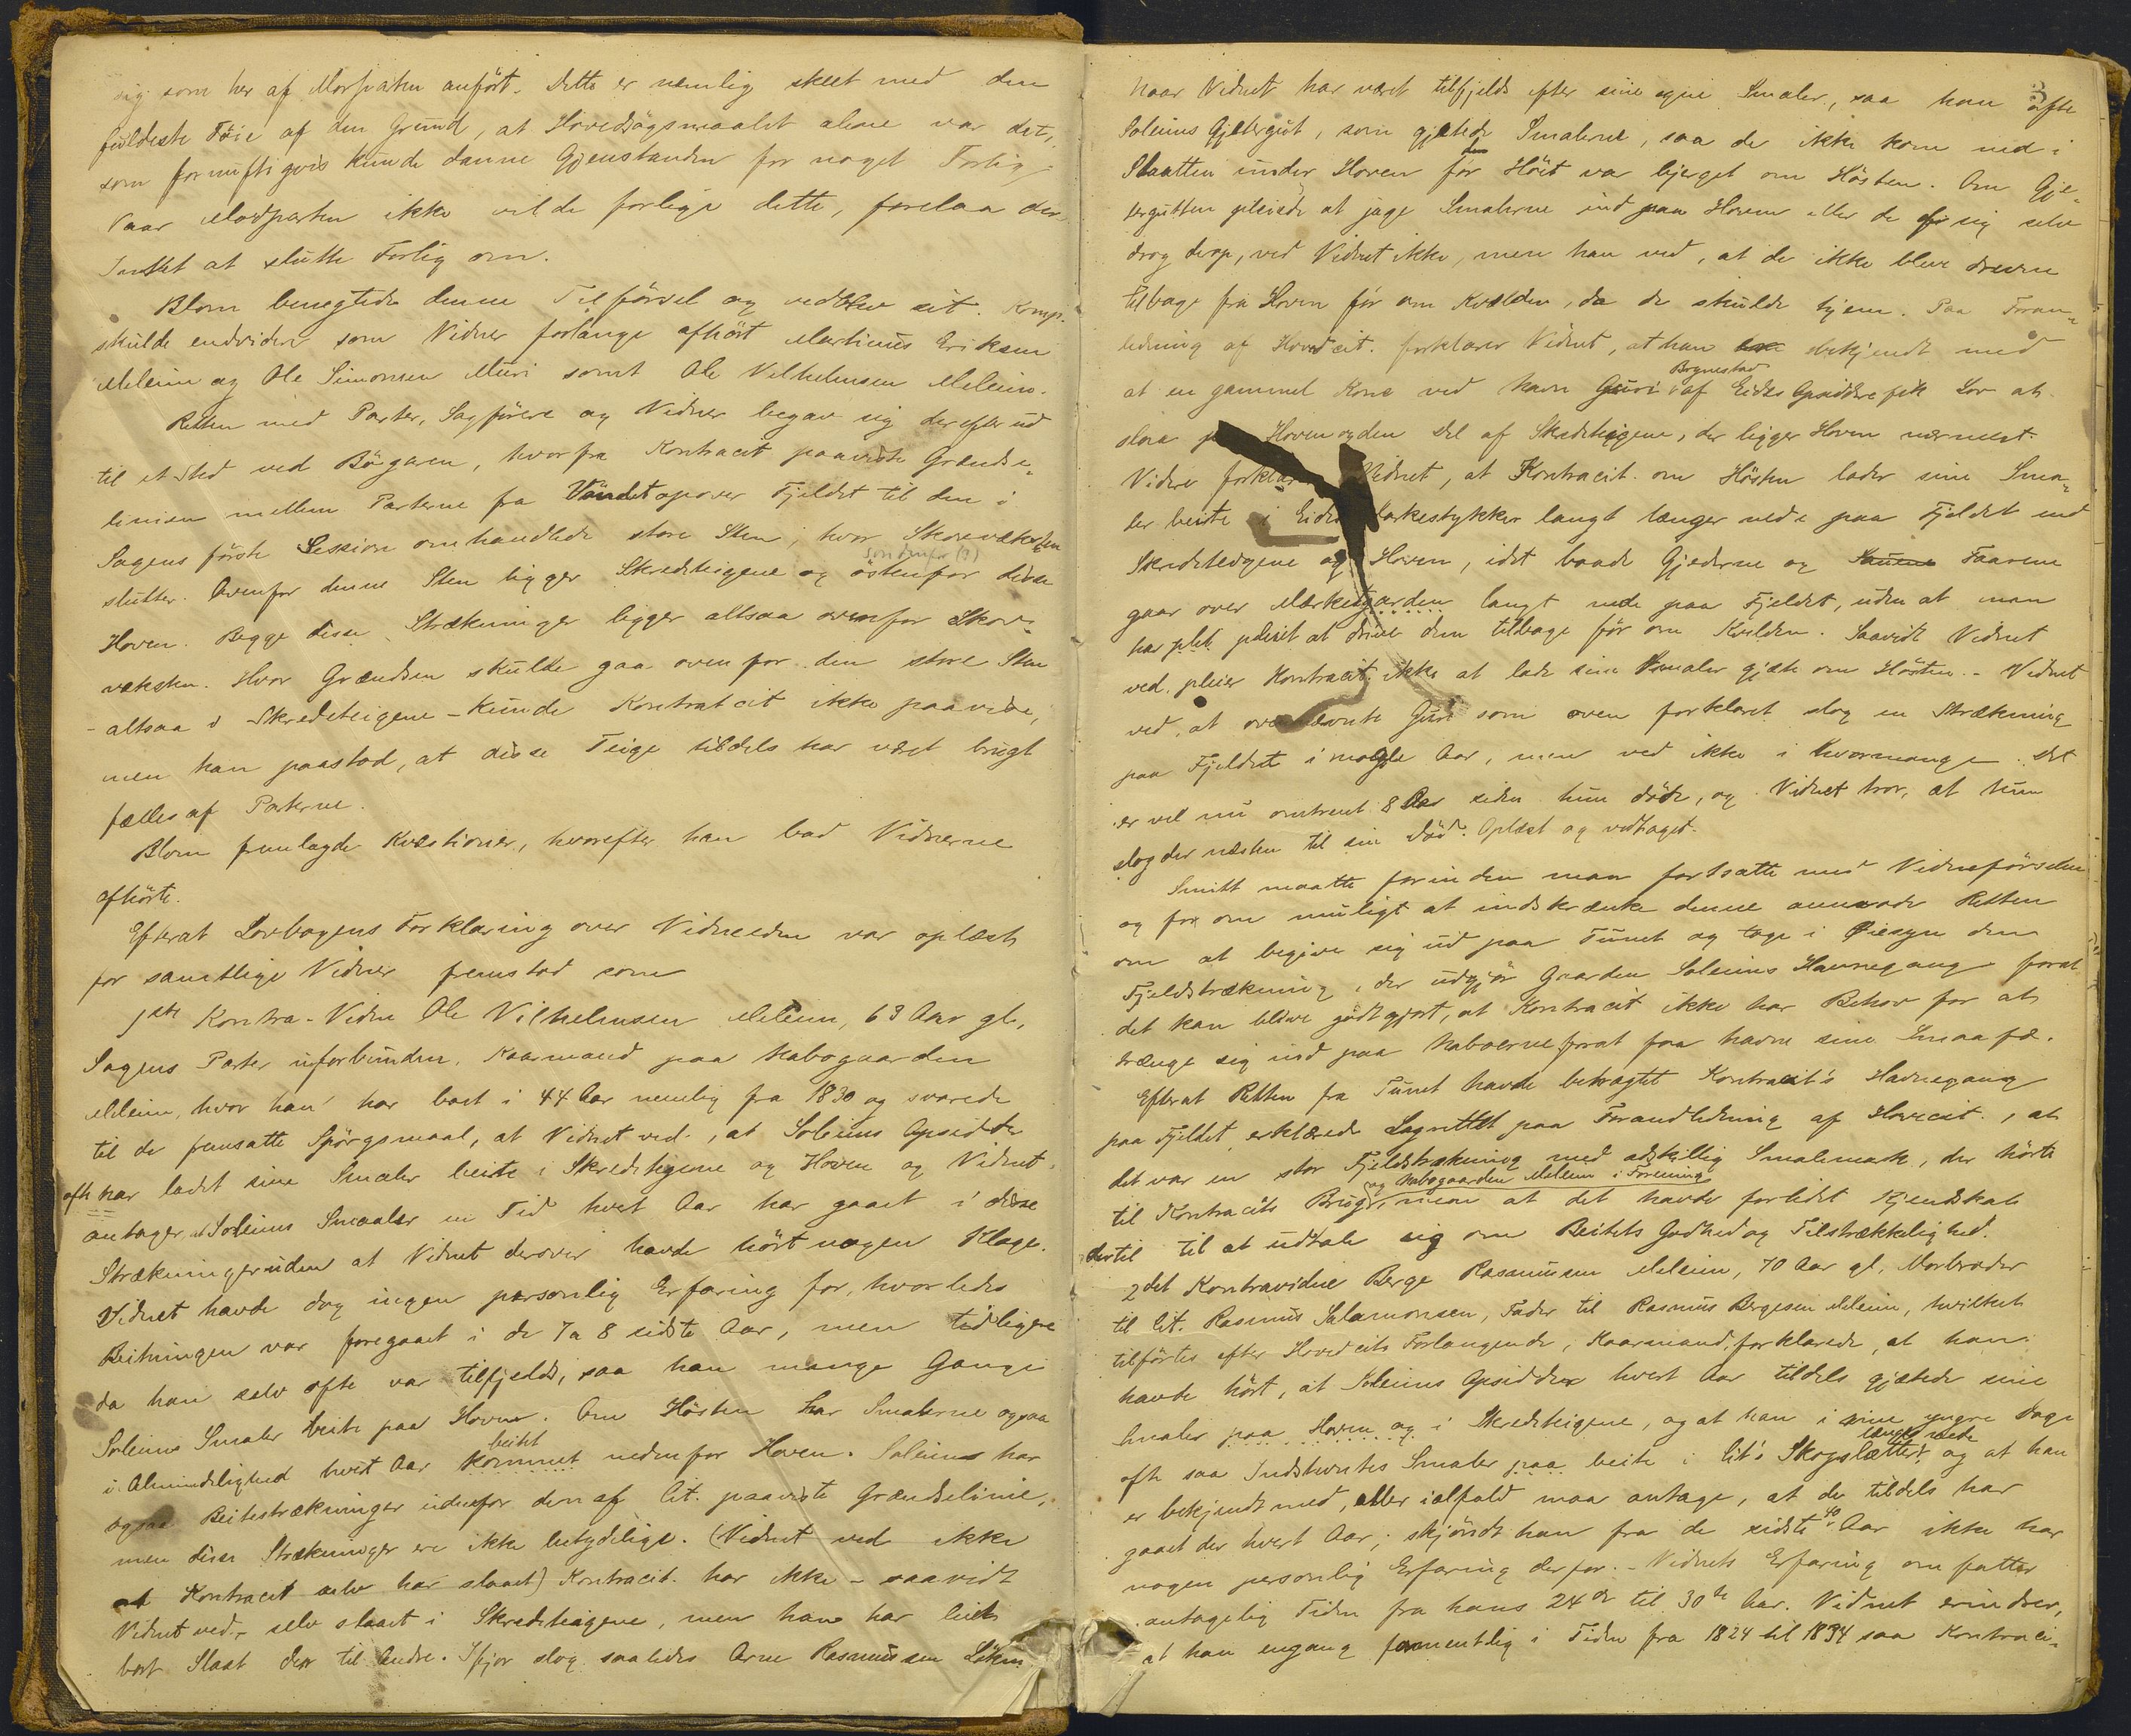 sig som her af Modparten anført. Dette er nemlig skeet med den
fuldeste Føie af den Grund, at Hovedsøgsmaalet alene var det,
som fornuftigvis kunde danne Gjenstanden for noget Forlig,
Naar Modparten ikke vilde forlige dette, forelaa der
Intet at slutte Forlig om.
Blom benegtede denne Tilførsel og vedblev sit. Komp.
skulde endvidere som Vidner forlange afhørt Martinus Eriksen
Meleim og Ole Simonsen Muri samt Ole Vilhelmsen Meleim.
Retten med Parter, Sagførere og Vidner begav sig derefter ud
til et Sted ved Bøgaren, hvorfra Kontracit paaviste Grændse-
linien mellem Parterne fra Vandet opover Fjeldet til den i
Sagens første Session omhandlede store Sten, hvor Skovvæksten
slutter. Ovenfor denne Sten ligger Skredteigene og østenfor disse
søndenfor (?)
Hoven. Begge disse Strækninger ligger altsaa ovenfor Skov-
væksten. Hvor Grændsen skulde gaa ovenfor den store Sten
- altsaa i Skredteigene - kunde Kontracit ikke paavise,
men han paastod, at disse Teige tildels har været brugt
fælles af Parterne.
Blom fremlagde Kvæstioner, hvorefter han bad Vidnerne
afhørte.
Efterat Lovbogens Forklaring over Vidneeden var oplæst
for samtlige Vidner fremstod som
1ste Kontra-Vidne Ole Vilhelmsen Meleim, 63 Aar gl.,
Sagens Parter uforbunden, Kaarmand paa Nabogaarden
Meleim, hvor han har boet i 44 Aar nemlig fra 1830 og svarede
til de fremsatte Spørgsmaal, at Vidnet ved, at Soleims Opsidder
ofte har ladet sine Smaler beite i Skredteigene og Hoven og Vidnet
antager, at Soleims Smaler en Tid hvert Aar har gaaet i disse
Strækninger uden at Vidnet derover havde hørt nogen Klage.
Vidnet havde dog ingen personlig Erfaring for, hvorledes
Beitningen var foregaaet i de 7 a 8 sidste Aar, men tidligere
da han selv ofte var tilfjelds, saa han mange Gange
Soleims Smaler beite paa Hoven. Om Høsten har Smalerne ogsaa
i Almindelighed hvert Aar kommet nedenfor Hoven. Soleims har
beitet
ogsaa Beitestrækninger udenfor den af Cit. paaviste Grændselinie,
men disse Strækninger ere ikke betydelige. (Vidnet ved ikke
at Kontracit selv har slaaet) Kontracit. har ikke - saavidt
Vidnet ved - selv slaaet i Skredteigene, men han har leiet
bort Slaat der til Andre. Ifjor slog saaledes Arne Rasmussen
Naar Vidnet har været tilfjelds efter sine egne Smaler, saa han ofte
Soleims Gjetergut, som gjætede Smalerne, saa de ikke kom ned i
Slaatten under Hoven før Høiet var bjerget om Høsten. Om Gje-
tergutten pleiede at jage Smalerne ind paa Hoven eller de af sig selv
drog derop, ved Vidnet ikke, men han ved, at de ikke bleve drevne
tilbage fra Hoven før om Kvælden, da de skulde hjem. Paa Foran-
ledning af Hovedcit. forklarer Vidnet, at han er bekjendt med
at en gammel Kone ved Navn Guri af Eides Opsiddere fik Lov at
Brynestad
slaa paa Hoven og den Del af Skredteigene, der ligger Hoven nærmest.
Videre forklarer Vidnet, at Kontracit. om Høsten lader sine Sma-
ler beite i Eides Markestykker langt længer nede paa Fjeldet end
Skredteigene og Hoven, idet baade Gjederne og Sauene Faarene
gaar over Merkesgarden langt nede paa Fjeldet, uden at man
har pleiet at drive dem tilbage før om Kvelden. Saavidt Vidnet
ved, pleier Kontracit. ikke at lade sine Smaler gjæte om Høsten. - Vidnet
ved, at ovennævnte Guri som oven forklaret slog en Strækning
paa Fjeldet i mange Aar, men ved ikke i hvormange. Det
er vel nu omtrent 8 Aar siden hun døde, og Vidnet tror, at hun
slog der næsten til sin Død. Oplæst og vedtaget.
Smitt maatte forinden man fortsatte med Vidneførselen
og for om muligt at indskrænke denne anmode Retten
om at begive sig ud paa Tunet og tage i Øiesyn den
Fjeldstrækning, der udgjør Gaarden Soleims Havnegang forat
det kan blive godtgjort, at Kontracit ikke har Behov for at
trænge sig ind paa Naboerne forat faa havne sine Smaafæ.
Efterat Retten fra Tunet havde betragtet Kontracit's Havnegang
paa Fjeldet, erklærede Lagrettet paa Foranledning af Hovcit., at
det var en stor Fjeldstrækning med adskillig Smalemark, der hørte
til Kontracits Brug, men at det havde forlidet Kjendskab
og Nabogaarden Meleim i Forening
dertil til at udtale sig om Beitets Godhed og Tilstrækkelighed.
2det Kontravidne Berge Rasmussen Meleim, 70 Aar gl. Morbroder
til Cit. Rasmus Salamonsen, Fader til Rasmus Bergesen Meleim, hvilket
tilførtes efter Hovedcits Forlangende, Kaarmand, forklarede, at han
havde hørt, at Soleims Opsiddere hvert Aar tildels gjætede sine
Smaler paa Hoven og i Skredteigene, og at han i sine yngre Dage
ofte saa Indstevntes Smaler paa beite i Cit's Skogslætter og at han
længer nede
er bekjendt med, eller ialfald maa antage, at de tildels har
gaaet der hvert Aar, skjøndt han fra de sidste 40 Aar ikke har
nogen personlig Erfaring derfor. - Vidnets Erfaring omfatter
antagelig Tiden fra hans 24de til 30te Aar. Vidnet erindrer,
at han engang formentlig i Tiden fra 1824 til 1834 saa Kontraci-